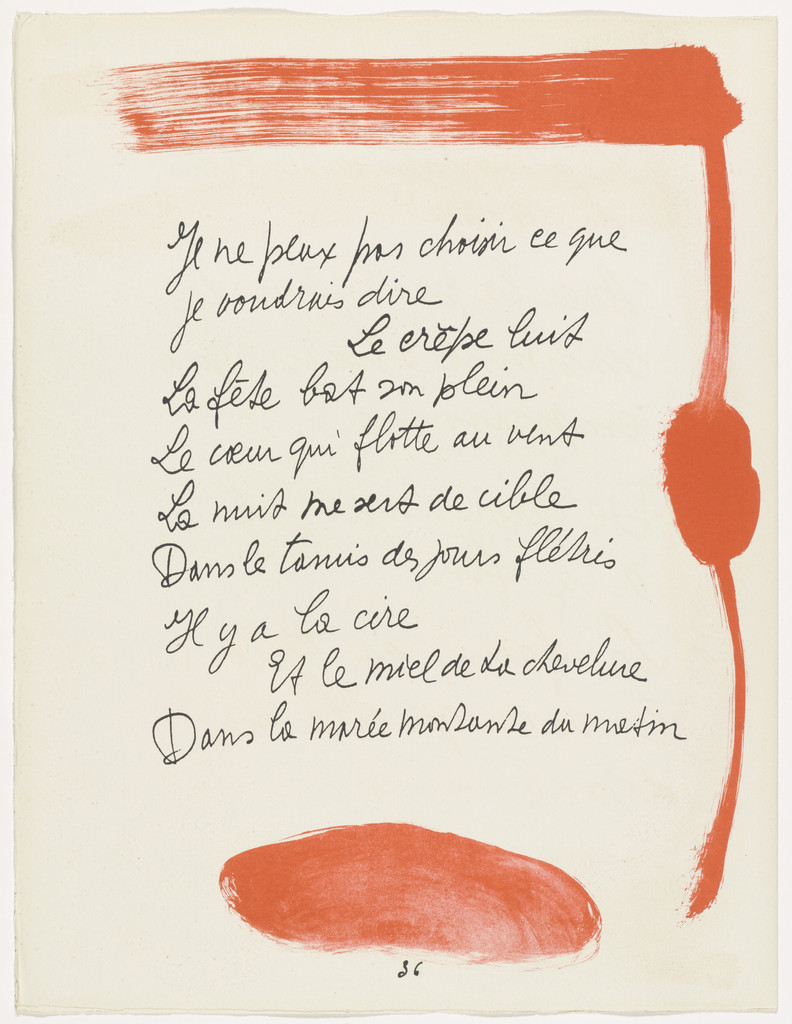 Je ne peux pas choisir ce que
je voudrais dire
Le crêpe luit
La fête bat son plein
Le cœur qui flotte au vent
La nuit me sert de cible
Dans le tamis des jours flétris
Il y a la cire
Et le miel de la chevelure
Dans la marée montante du matin
36